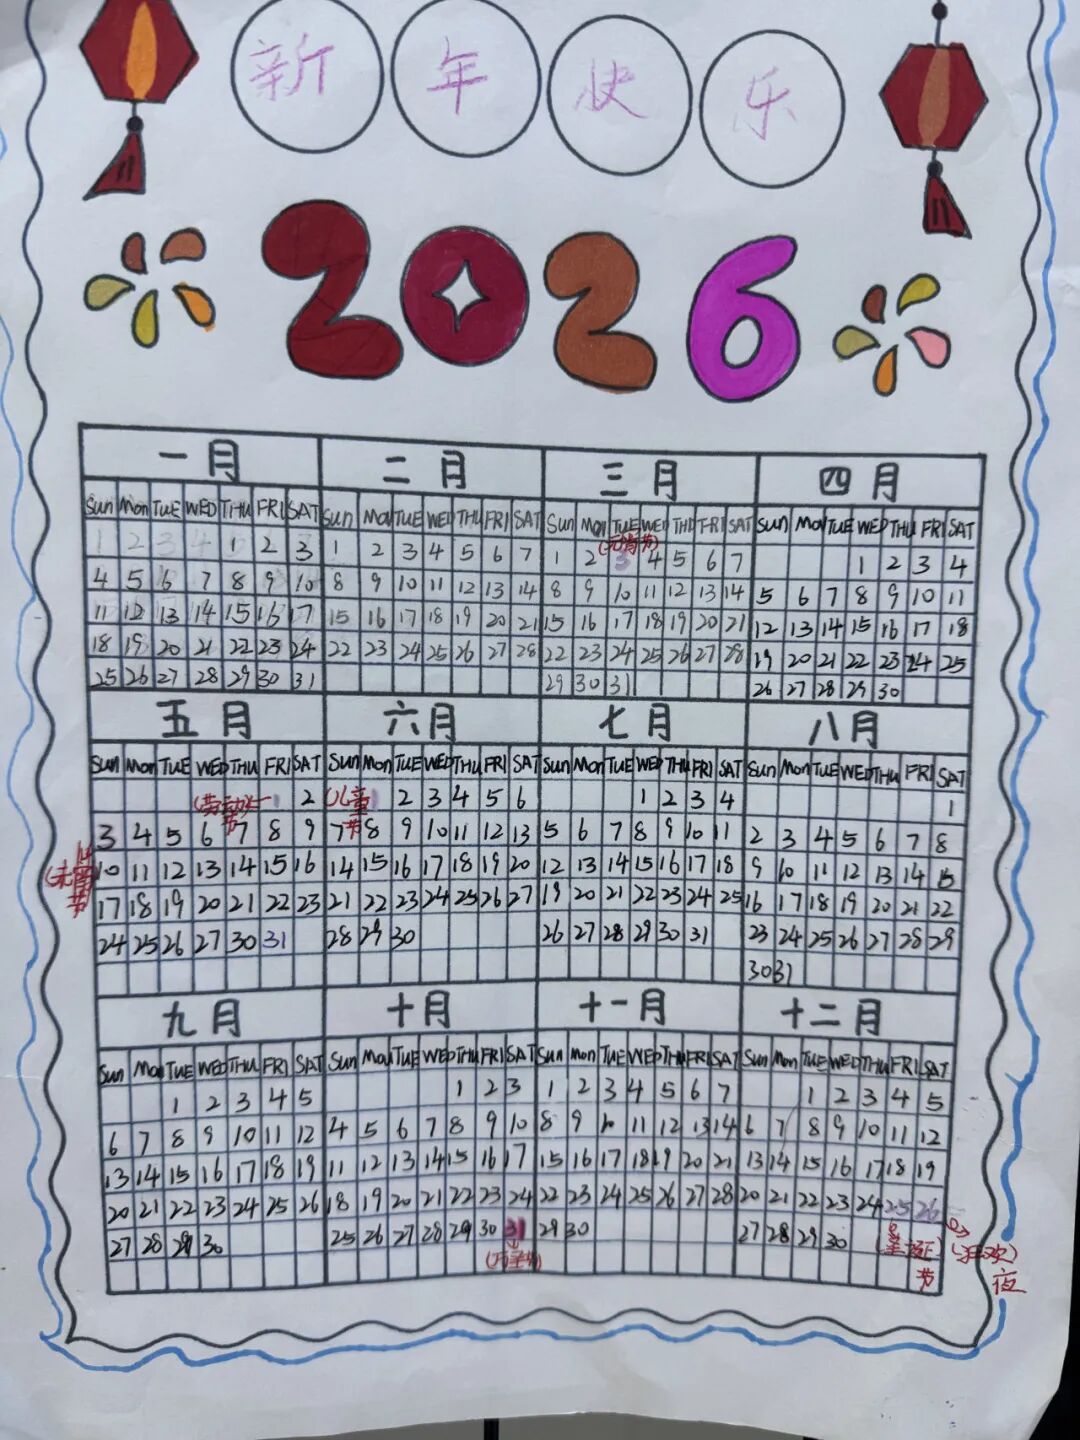 新年快乐
2026
一月 二月 三月 四月
Sun Mon TUE WED THU FRI SAT Sun Mon TUE WED THU FRI SAT Sun Mon TUE WED THU FRI SAT Sun Mon TUE WED THU FRI SAT
1 2 3 4 1 2 3 1 2 3 4 5 6 7 1 2 3 (元宵节) 4 5 6 7 1 2 3 4
4 5 6 7 8 9 10 8 9 10 11 12 13 14 8 9 10 11 12 13 14 5 6 7 8 9 10 11
11 12 13 14 15 16 17 15 16 17 18 19 20 21 15 16 17 18 19 20 21 12 13 14 15 16 17 18
18 19 20 21 22 23 24 22 23 24 25 26 27 28 22 23 24 25 26 27 28 19 20 21 22 23 24 25
25 26 27 28 29 30 31 29 30 31 26 27 28 29 30
五月 六月 七月 八月
Sun Mon TUE WED THU FRI SAT Sun Mon TUE WED THU FRI SAT Sun Mon TUE WED THU FRI SAT Sun Mon TUE WED THU FRI SAT
(劳动节 1 2 (儿童节 1 2 3 4 5 6 1 2 3 4 1
3 4 5 6 7 8 9 7 8 9 10 11 12 13 5 6 7 8 9 10 11 2 3 4 5 6 7 8
10 11 12 13 14 15 16 14 15 16 17 18 19 20 12 13 14 15 16 17 18 9 10 11 12 13 14 15
17 18 19 20 21 22 23 21 22 23 24 25 26 27 19 20 21 22 23 24 25 16 17 18 19 20 21 22
24 25 26 27 30 31 28 29 30 26 27 28 29 30 31 23 24 25 26 27 28 29
30 31
九月 十月 十一月 十二月
Sun Mon TUE WED THU FRI SAT Sun Mon TUE WED THU FRI SAT Sun Mon TUE WED THU FRI SAT Sun Mon TUE WED THU FRI SAT
1 2 3 4 5 1 2 3 1 2 3 4 5 6 7 1 2 3 4 5
6 7 8 9 10 11 12 4 5 6 7 8 9 10 8 9 10 11 12 13 14 6 7 8 9 10 11 12
13 14 15 16 17 18 19 11 12 13 14 15 16 17 15 16 17 18 19 20 21 13 14 15 16 17 18 19
20 21 22 23 24 25 26 18 19 20 21 22 23 24 22 23 24 25 26 27 28 20 21 22 23 24 25 26
27 28 29 30 25 26 27 28 29 30 31 29 30 27 28 29 30
(万圣节) (圣诞节) (狂欢夜)